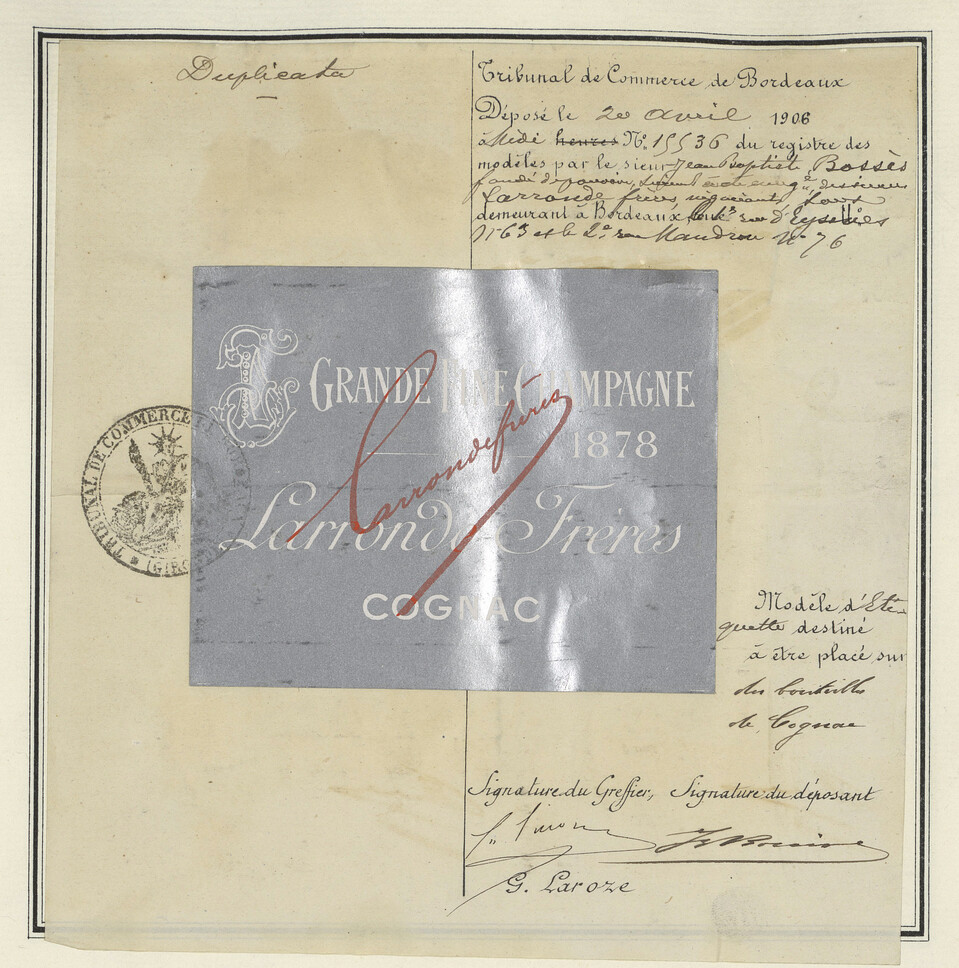 Duplicata
Tribunal de Commerce de Bordeaux
Déposé le 20 avril 1906
à Midi heures No. 15536 du registre des
modèles par le sieur Jean Baptiste Bossès
fondé de pouvoirs, des sieurs
Larronde frères négociants,
demeurant à Bordeaux, rue d'Eysines
No 63 et le 2e rue Mandron No 76
TRIBUNAL DE COMMERCE
(GIRO
GRANDE FINE CHAMPAGNE
1878
Larronde frères
Larronde Frères
COGNAC
Modèle d'Eti-
quette destiné
à être placé sur
des bouteilles
de Cognac
Signature du Greffier, Signature du déposant
G. Laroze